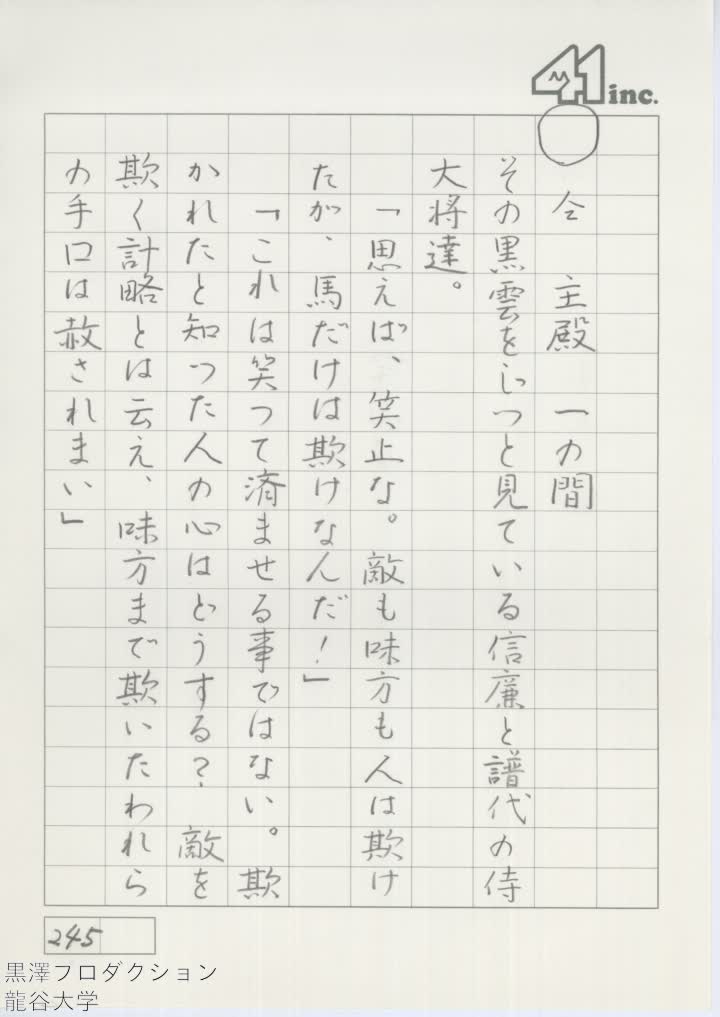 41 inc.
○
仝　主殿　一の間
その黒雲をじっと見ている信廉と譜代の侍
大将達。
「思えば、笑止な。敵も味方も人は欺け
たが、馬だけは欺けなんだ！」
「これは笑って済ませる事ではない。欺
かれたと知った人の心はどうする？　敵を
欺く計略とは云え、味方まで欺いたわれら
の手口は赦されまい」
245
黒澤フロダクション
龍谷大学